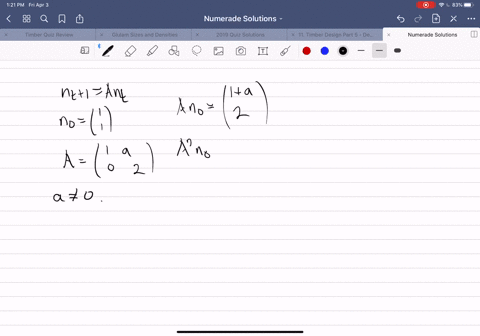 1:21 PM Fri Apr 3
83%
Numerade Solutions
Timber Quiz Review
Glulam Sizes and Densities
2019 Quiz Solutions
11. Timber Design Part 5 - De...
Numerade Solutions
n_{t+1} = An_t
n_0 = (1 1)
A = (1 a
0 2)
a ≠ 0.
An_0 = (1+a
2)
A^2 n_0